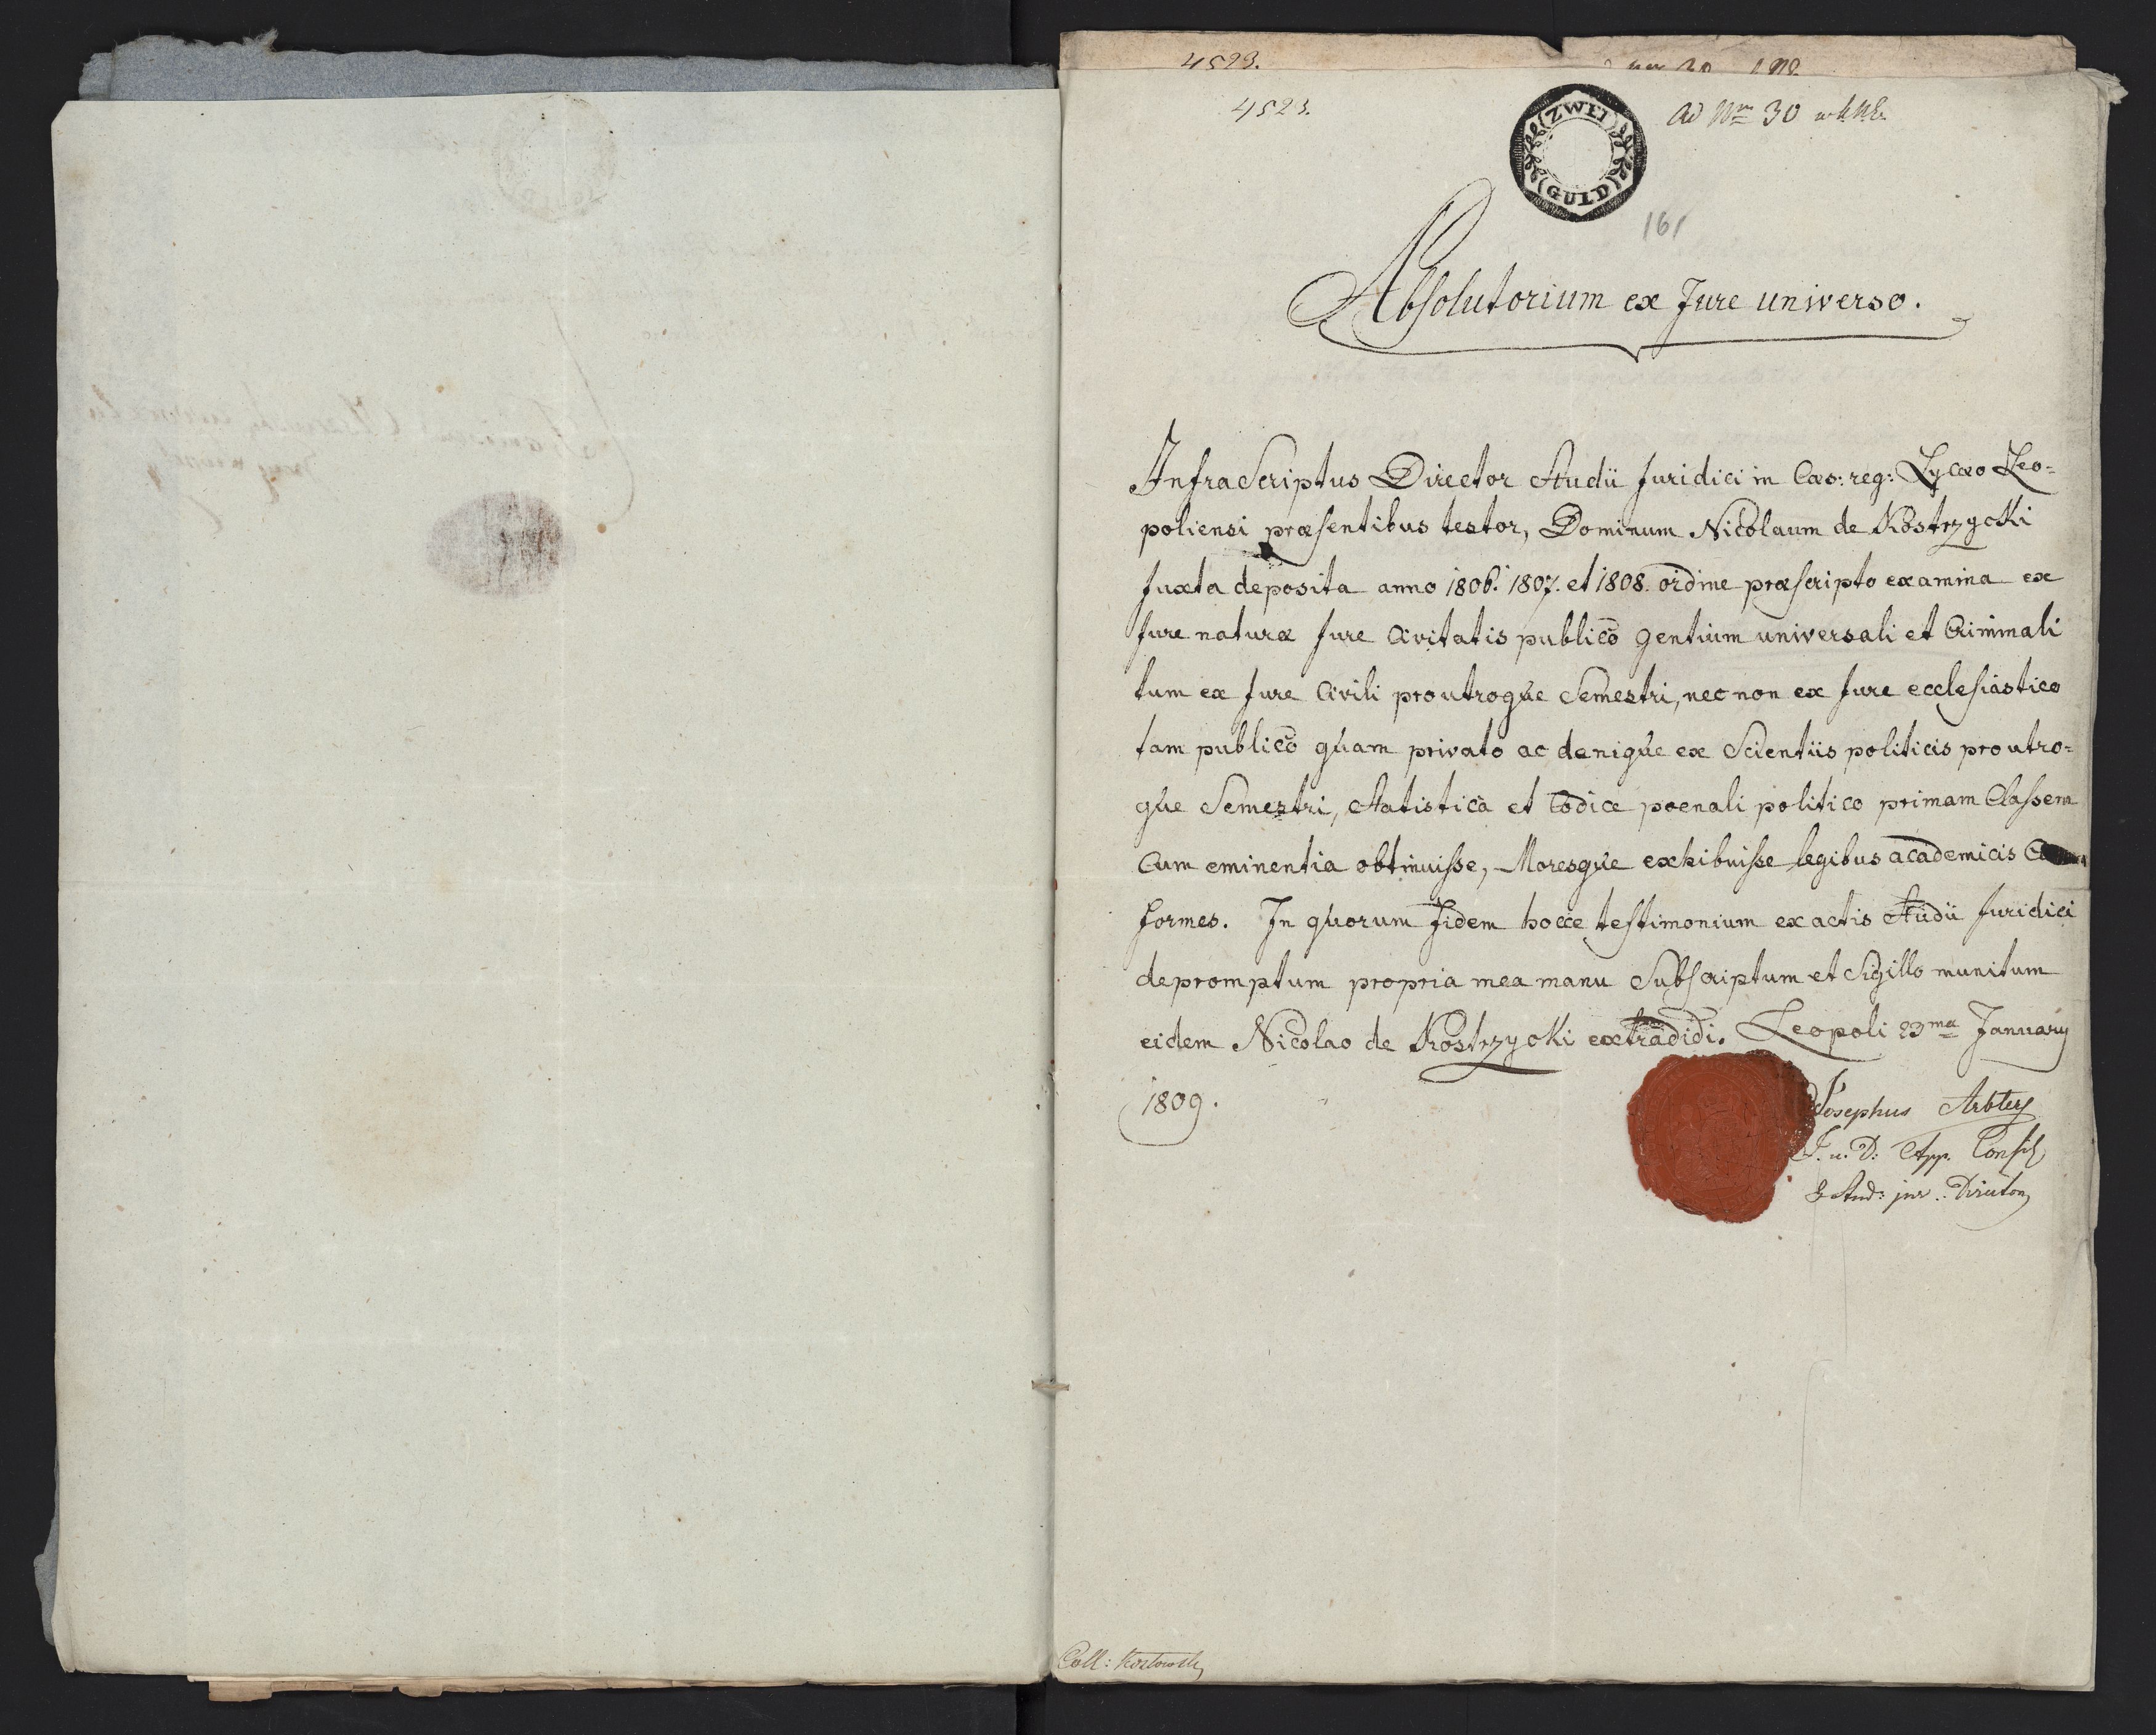 4523.
4523.
ZWEI
GULD
ad Nrm 30
161
Absolutorium ex Jure universo.
Infrascriptus Director Studii Juridici in Caes: reg: Lycaeo Leo=
poliensi praesentibus testor, Dominum Nicolaum de Kostrzycki
Juxta deposita anno 1806. 1807. et 1808. ordine praescripto examina ex
Jure naturae Jure Civitatis publico gentium universali et Criminali
tum ex Jure Civili pro utroque Semestri, nec non ex Jure ecclesiastico
tam publico quam privato ac denique ex Scientiis politicis pro utro=
que Semestri, Statistica et Codice poenali politico primam Classem
Cum eminentia obtinuisse, Moresque exhibuisse legibus academicis
formes. In quorum fidem hocce testimonium ex actis Studii Juridici
depromptum propria mea manu Subscriptum et Sigillo munitum
eidem Nicolao de Kostrzycki extradidi. Leopoli 23ma January
1809.
Josephus Arbter
J. u. D: App. Consil
& Stud: jur: Director
Coll: